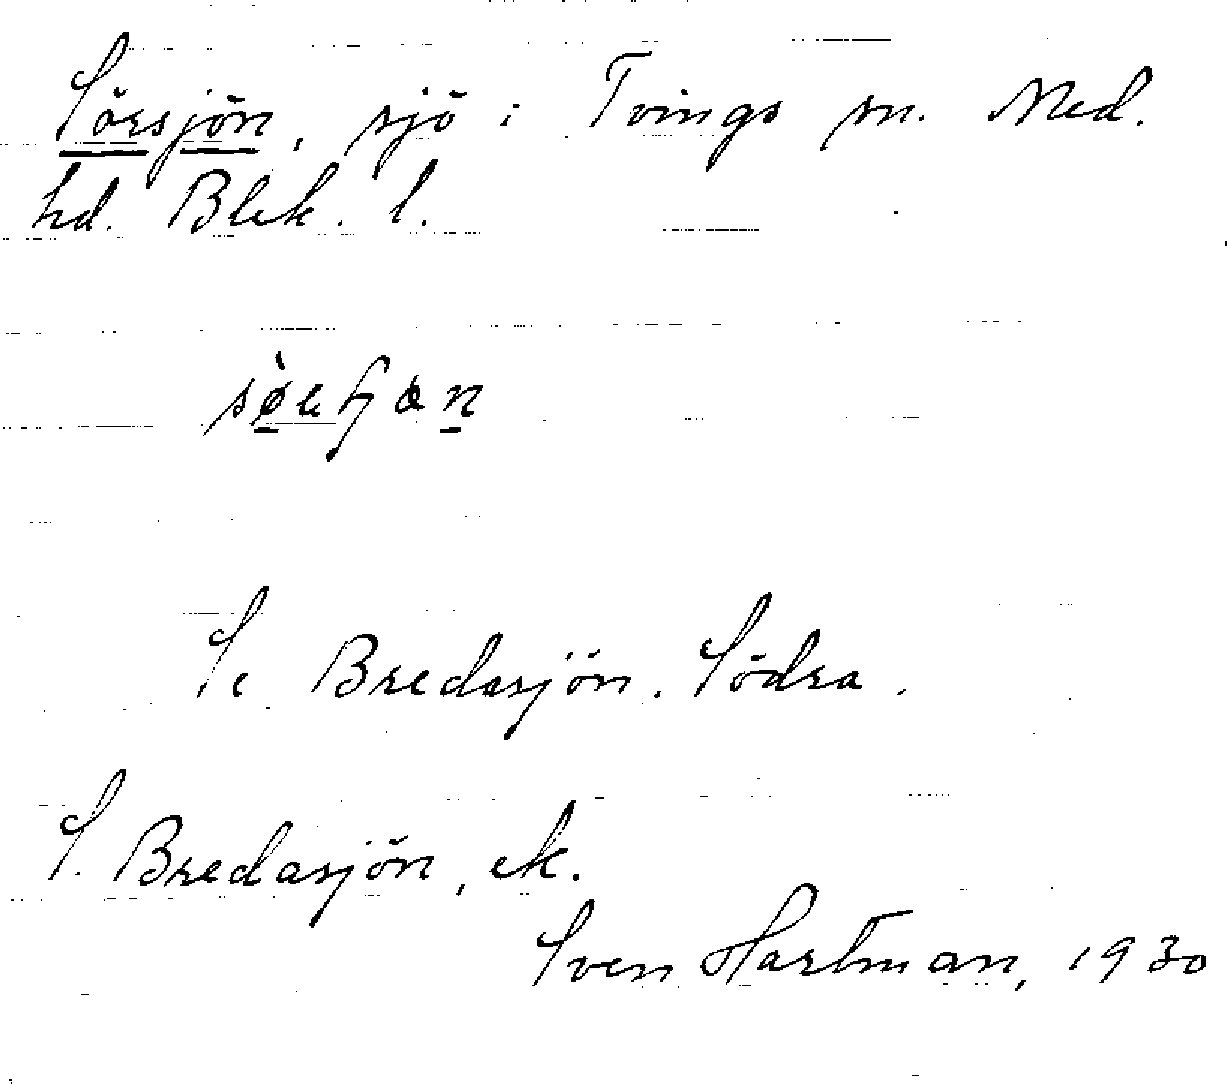 Sörsjön, sjö i Tvings sn. Med.
hd. Blek. l.
Se Bredasjön. Södra.
S. Bredasjön, ek.
Sven Hartman, 1930